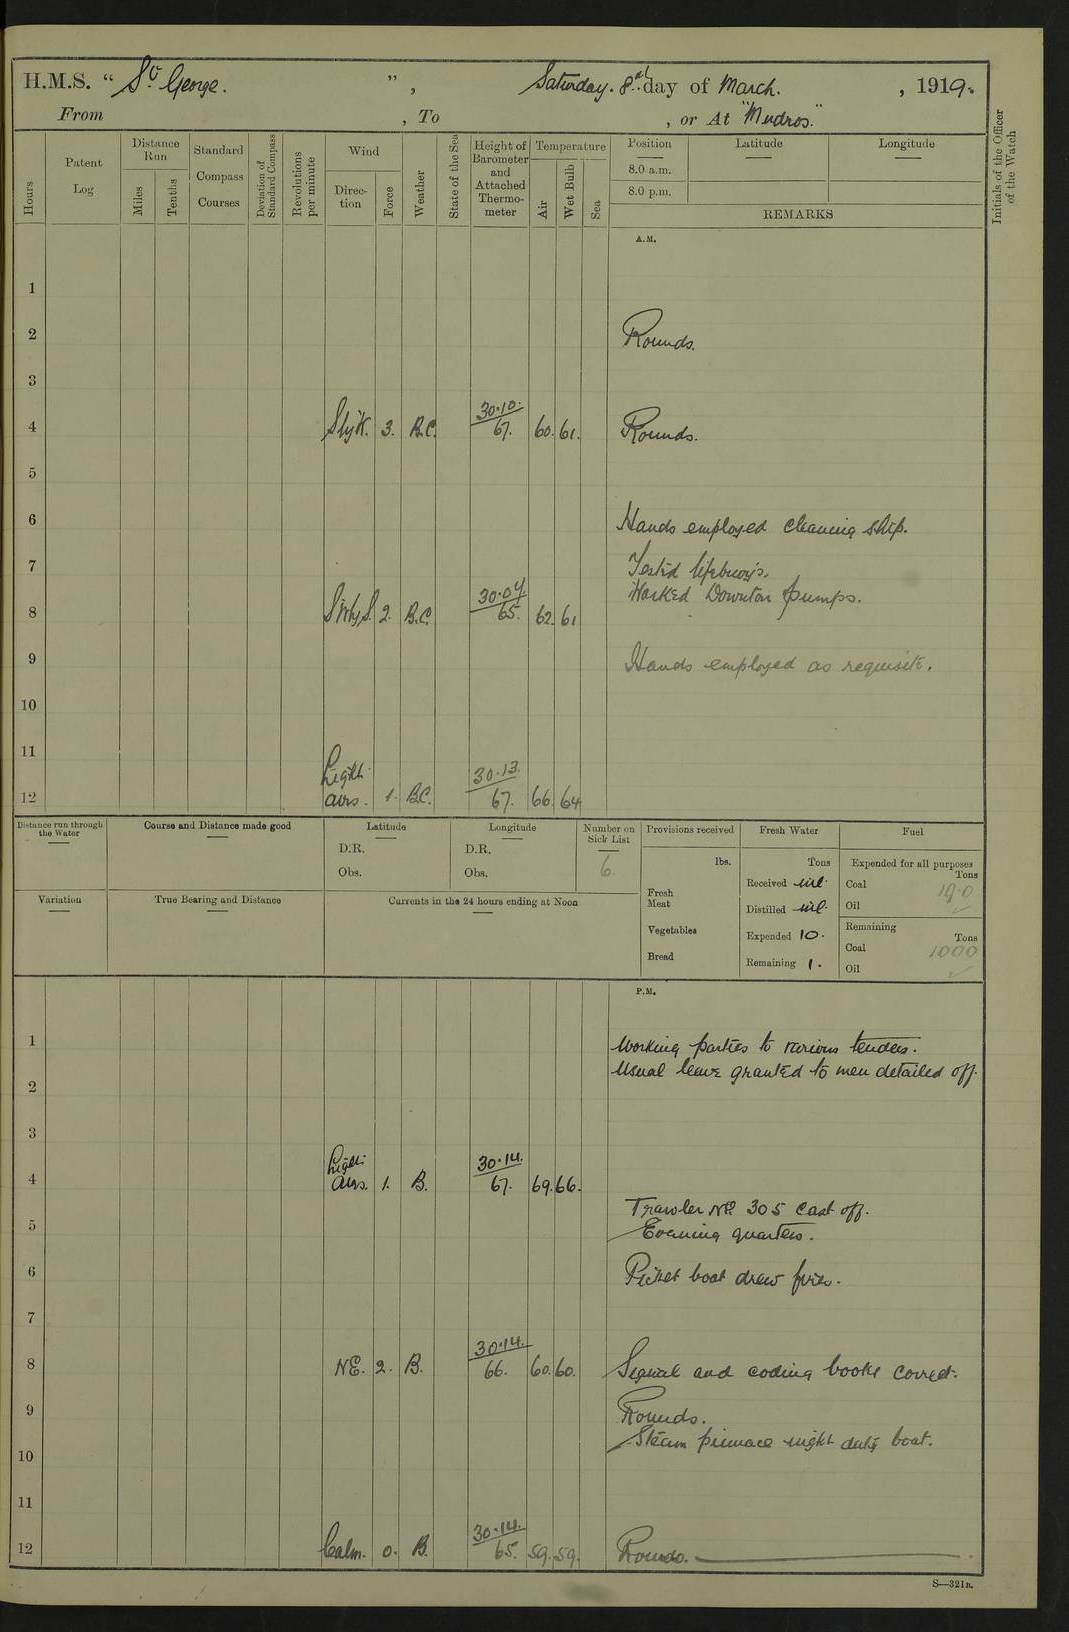 H.M.S. " St. George. ", Saturday. 8th day of March. , 1919.
From , To , or At "Mudros."
Hours
Patent Log
Distance Run
Miles
Tenths
Standard Compass Courses
Deviation of Standard Compass
Revolutions per minute
Wind
Direction
Force
Weather
State of the Sea
Height of Barometer and Attached Thermometer
Temperature
Air
Wet Bulb
Sea
Position
Latitude
Longitude
8.0 a.m.
8.0 p.m.
REMARKS
Initials of the Officer of the Watch
A.M.
1
2 Rounds.
3
4 SbyW. 3. B.C. 30.10. 67. 60. 61. Rounds.
5
6 Hands employed cleaning ship.
7 Tested lifebuoys.
Worked Downton pumps.
8 2. B.C. 30.04. 65. 62. 61
9 Hands employed as requisite.
10
11
12 Light airs. 1. B.C. 30.13. 67. 66. 64
Distance run through the Water
Course and Distance made good
Latitude
D.R.
Obs.
Longitude
D.R.
Obs.
Number on Sick List
6.
Provisions received
lbs.
Fresh Meat
Vegetables
Bread
Fresh Water
Tons
Received nil.
Distilled nil.
Expended 10.
Remaining 1.
Fuel
Expended for all purposes
Tons
Coal 19.0
Oil
Remaining
Tons
Coal 1000
Oil
Variation
True Bearing and Distance
Currents in the 24 hours ending at Noon
P.M.
1 Working parties to various tenders.
Usual leave granted to men detailed off.
2
3
4 Light airs. 1. B. 30.14. 67. 69. 66.
Trawler No 305 cast off.
5 Evening quarters.
6 Picket boat drew fires.
7
8 NE. 2. B. 30.14. 66. 60. 60. Signal and coding books correct.
9 Rounds.
Steam pinnace night duty boat.
10
11
12 Calm. 0. B. 30.14. 65. 59. 59. Rounds.
S—321B.